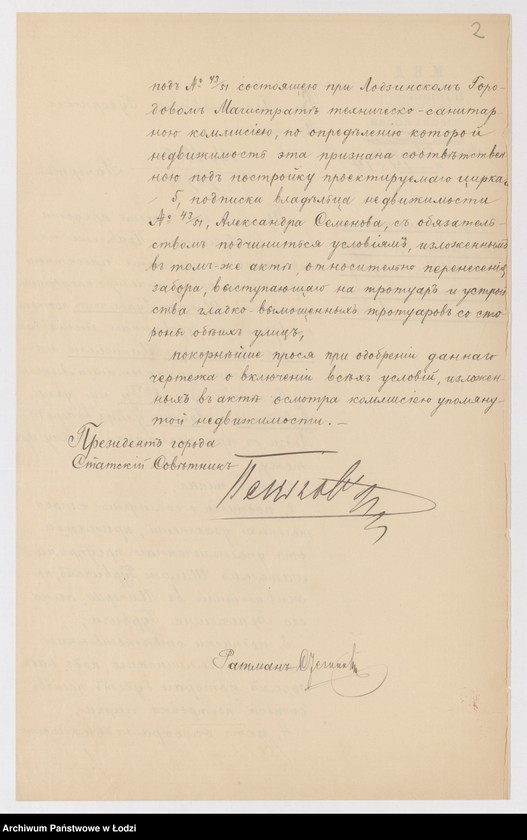 2
подъ № 43/51 состоящею при Лодзинскомъ Горо-
довомъ Магистратѣ техническо-санитар-
ною коммисіею, по опредѣленію которой
недвижимость эта признана соотвѣтствен-
ною подъ постройку проектируемаго цирка,
5, подписки владѣльца недвижимости
№ 43/51, Александра Семенова, съ обязатель-
ствомъ подчиниться условіямъ, изложеннымъ
въ томъ-же актѣ, относительно перенесенія
забора, выступающаго на тротуаръ и устрой
ства гладко-вымощенныхъ тротуаровъ со сто-
роны обѣихъ улицъ,
покорнѣйше прося при одобреніи даннаго
чертежа о включеніи всѣхъ условій, изложен-
ныхъ въ актѣ осмотра коммисіею упомяну-
той недвижимости. —
Президентъ города
Статскій Совѣтникъ
Пеньковскій
Ратманъ
Archiwum Państwowe w Łodzi